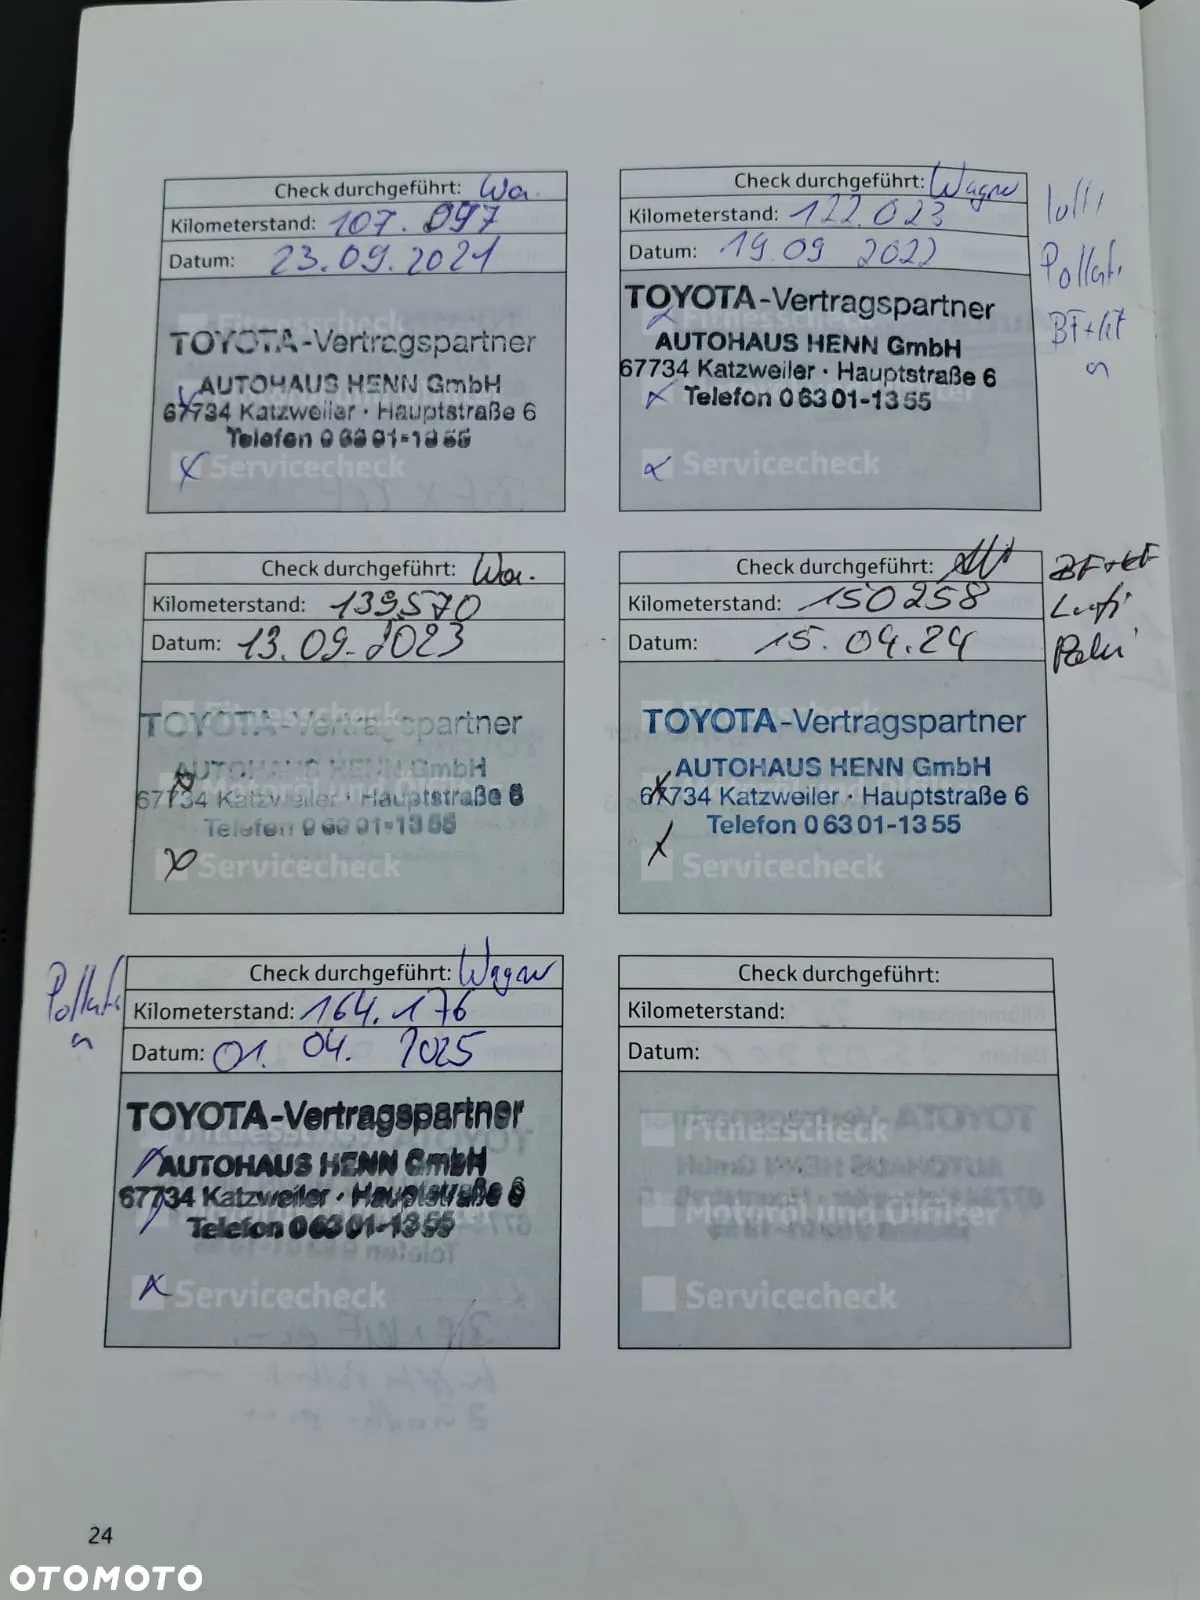 Check durchgeführt: Wa.
Kilometerstand: 107.097
Datum: 23.09.2021
Fitnesscheck
TOYOTA-Vertragspartner
AUTOHAUS HENN GmbH
67734 Katzweiler · Hauptstraße 6
Telefon 0 63 01-13 55
Servicecheck
Check durchgeführt: Wagner
Kilometerstand: 122.023
Datum: 19.09 2022
Luffi
Pollenfi
BF+kF
Fitnesscheck
TOYOTA-Vertragspartner
AUTOHAUS HENN GmbH
67734 Katzweiler · Hauptstraße 6
Motoröl und Ölfilter
Telefon 0 63 01-13 55
Servicecheck
Check durchgeführt: Wa.
Kilometerstand: 139570
Datum: 13.09.2023
Fitnesscheck
TOYOTA-Vertragspartner
AUTOHAUS HENN GmbH
67734 Katzweiler · Hauptstraße 6
Telefon 0 63 01-13 55
Servicecheck
Check durchgeführt:
Kilometerstand: 150258
Datum: 15.04.24
BF+kF
Luftfi
Fitnesscheck
TOYOTA-Vertragspartner
AUTOHAUS HENN GmbH
67734 Katzweiler · Hauptstraße 6
Telefon 0 63 01-13 55
Servicecheck
Check durchgeführt: Wagner
Kilometerstand: 164.176
Datum: 01. 04. 2025
Fitnesscheck
TOYOTA-Vertragspartner
AUTOHAUS HENN GmbH
67734 Katzweiler · Hauptstraße 6
Telefon 0 63 01-13 55
Servicecheck
Check durchgeführt:
Kilometerstand:
Datum:
Fitnesscheck
Motoröl und Ölfilter
Servicecheck
24
OTOMOTO